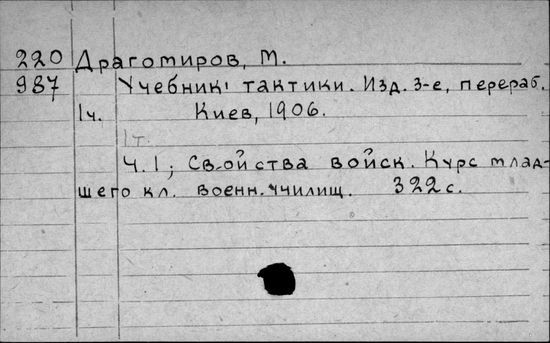 220 Драгомиров, М.
987 Учебник тактики. Изд. 3-е, перераб.
1ч. Киев, 1906.
1т.
Ч.I; Свойства войск. Курс млад-
шего кл. военн. училищ. 322 с.